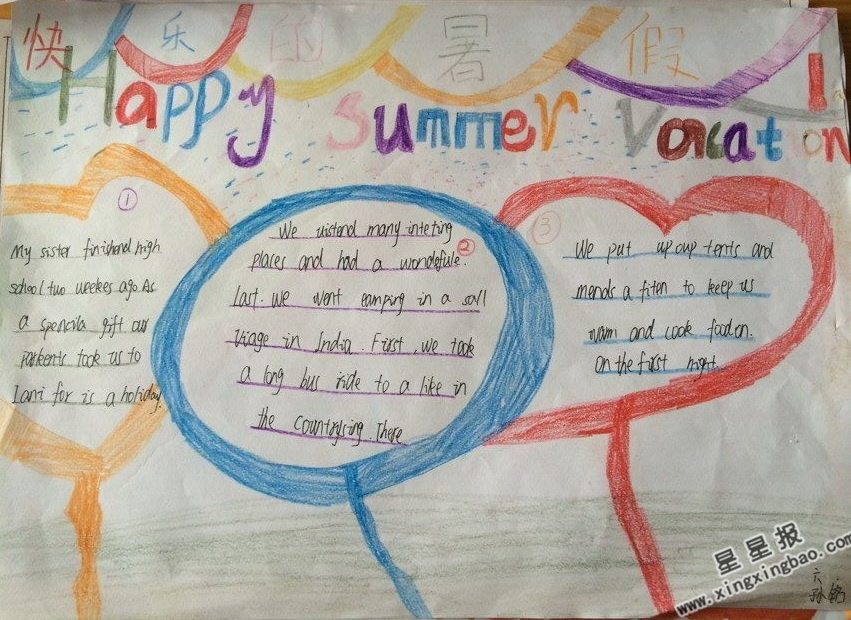 快乐的暑假
Happy Summer Vacation
①
My sister finishend high
school two weekes ago As
a spencila gift our
Parkents took us to
Iani for is a holiday.
②
We uistend many inteting
places and had a wondefule.
last. We went camping in a sall
Viage in India. First, we took
a long bus ride to a like in
the Countrysing. There
③
We put up oup tents and
mends a fiten to keep us
wam and cook food on.
On the first night.
星星报
www.xingxingbao.com
六.
孙